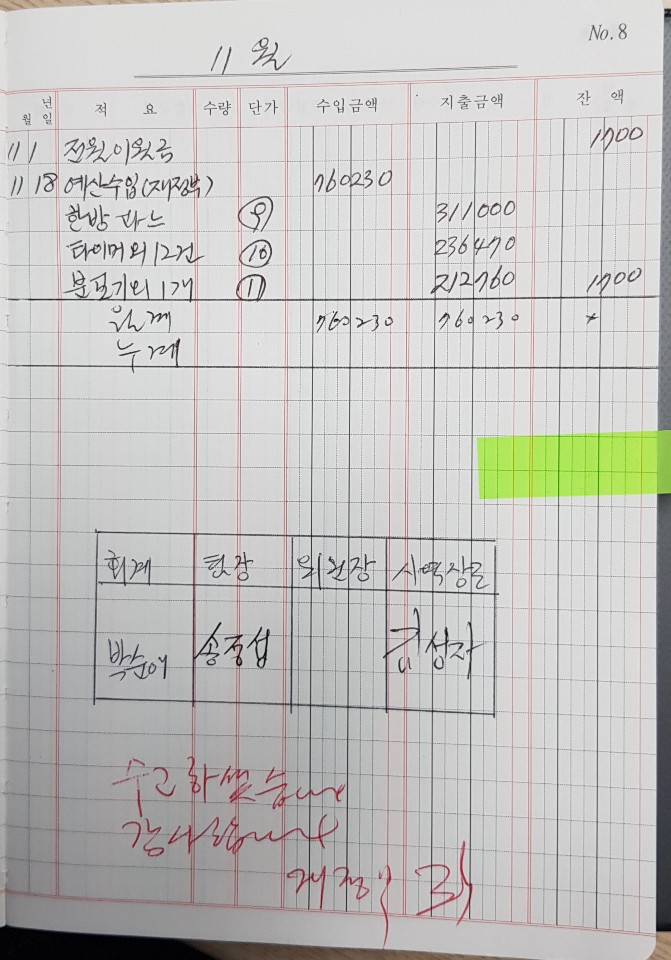 No. 8
11 월
년 월 일 적 요 수량 단가 수입금액 지출금액 잔 액
11 1 전월이월금 1700
11 18 예산수입(재정부) 760230
한방 파스 ⑨ 311000
타이머외 12건 ⑩ 236470
분포기외 1개 ⑪ 212760 1700
월계 760230 760230
누계
회계 팀장 위원장 사역장로
박순애 송정섭 성자
수고하셨습니다
감사합니다